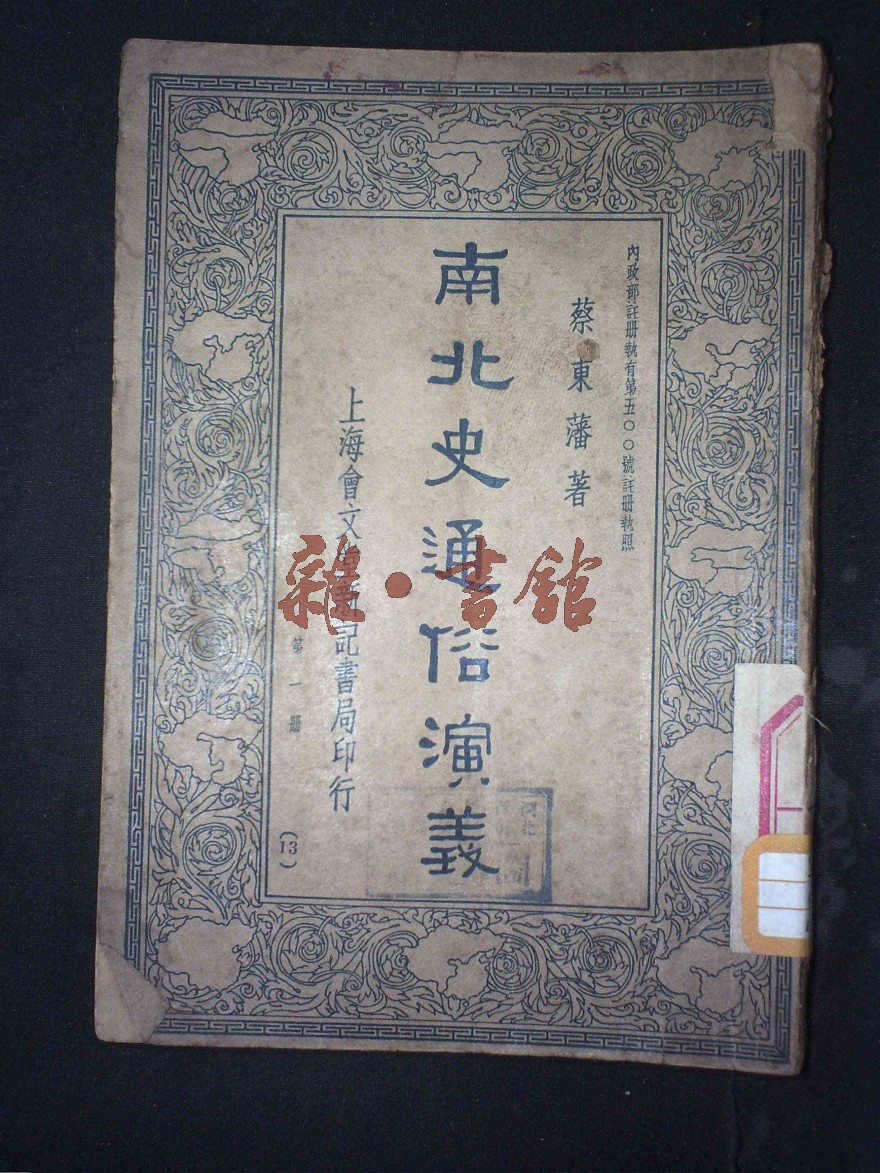 內政部註册執有第五〇〇號註册執照
蔡東藩著
南北史通俗演義
上海會文堂新記書局印行
第一册
(13)
雜·書館